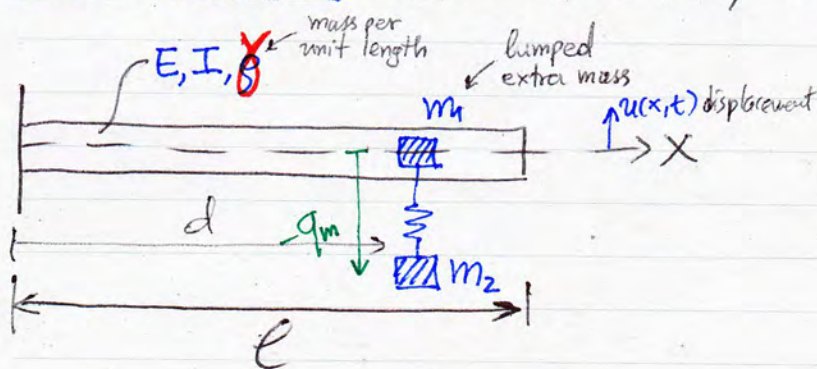 mass per
unit length
E, I, γ
lumped
extra mass
m1
u(x,t) displacement
X
d
-qm
m2
l